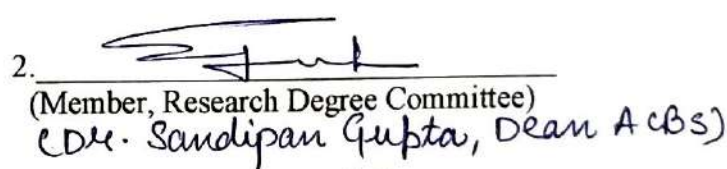 2.
(Member, Research Degree Committee)
(Dr. Sandipan Gupta, Dean ACBS)